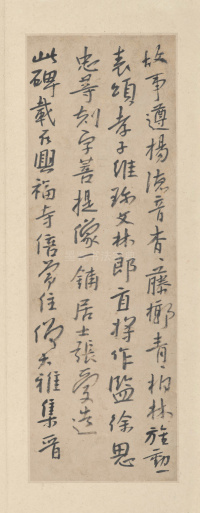 故事遵楊德音杳〻藤鄉青〻柏林旌勳
表頌孝子維珎文林郎直將作監徐思
忠等刻字菩提像一鋪居士張愛造
此碑載在興福寺陪常住僧大雅集晉